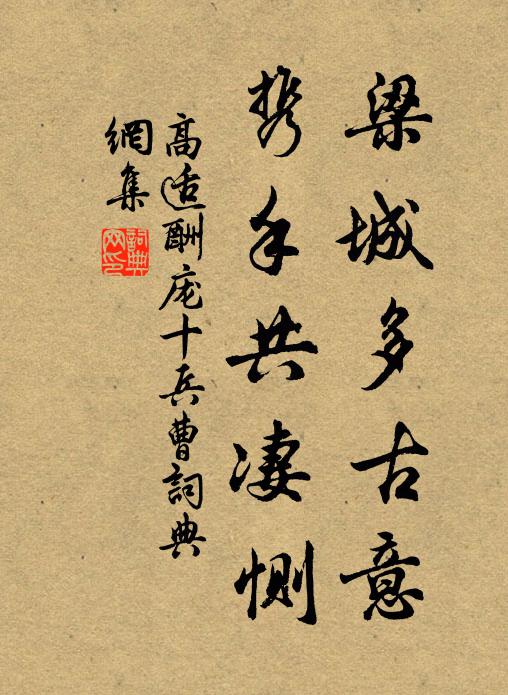 梁城多古意
携手共凄恻
高适酬庞十兵曹詞典
網集
詞典
網印